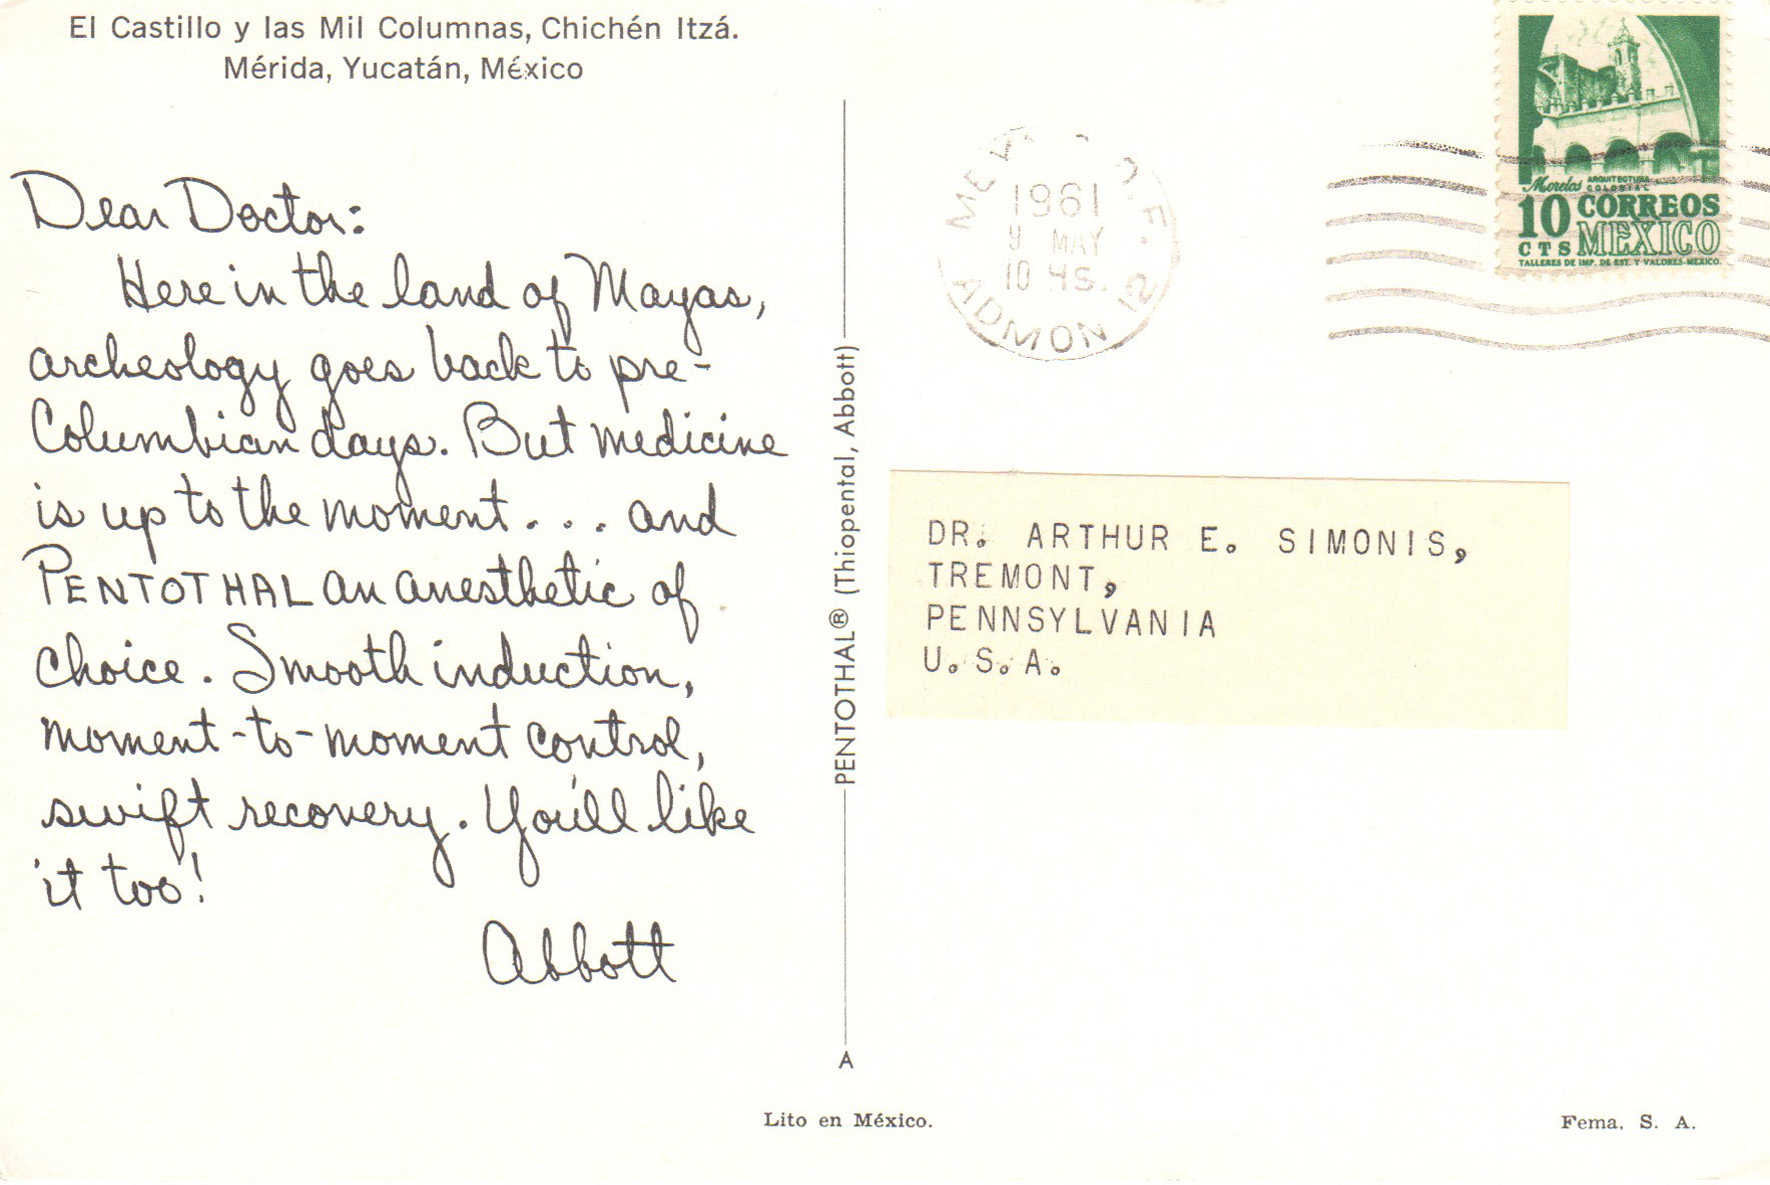 El Castillo y las Mil Columnas, Chichén Itzá.
Mérida, Yucatán, México
Dear Doctor:
Here in the land of Mayas,
archeology goes back to pre-
Columbian days. But medicine
is up to the moment . . . and
PENTOTHAL an anesthetic of
choice. Smooth induction,
moment-to-moment control,
swift recovery. You'll like
it too!
Abbott
PENTOTHAL® (Thiopental, Abbott)
A
1961
9 MAY
10 HS.
ADMON 12
Morelos ARQUITECTURA
COLONIAL
10 CORREOS
CTS MEXICO
TALLERES DE IMP. DE EST. Y VALORES-MEXICO.
DR. ARTHUR E. SIMONIS,
TREMONT,
PENNSYLVANIA
U.S.A.
Lito en México.
Fema. S. A.